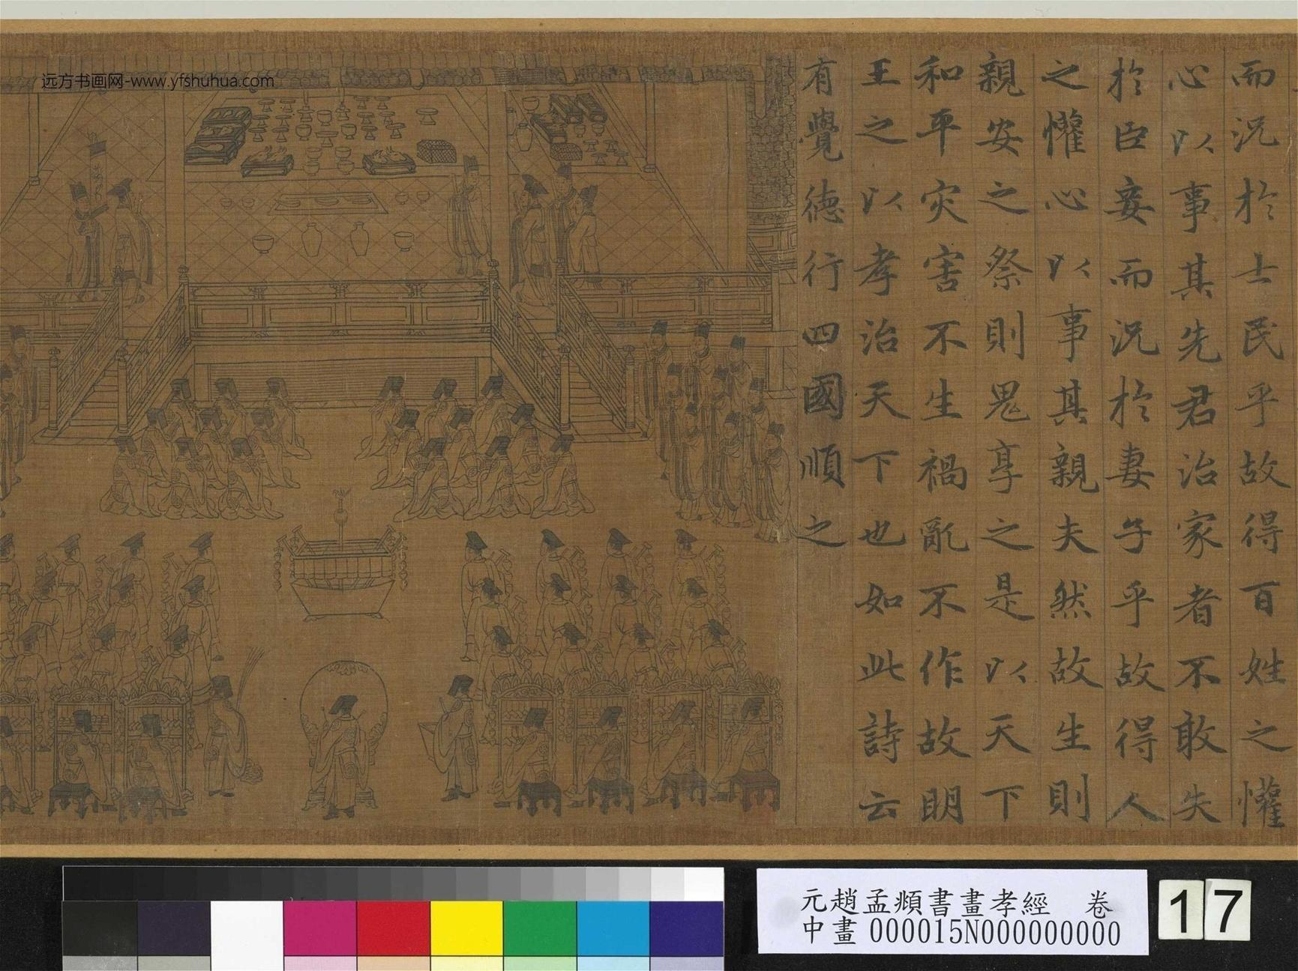 远方书画网-www.yfshuhua.com
而况於士民乎故得百姓之懽
心以事其先君治家者不敢失
於臣妾而况於妻子乎故得人
之懽心以事其親夫然故生則
親安之祭則鬼享之是以天下
和平灾害不生禍亂不作故明
王之以孝治天下也如此詩云
有覺德行四國順之
元趙孟頫書畫孝經 卷
中畫 000015N000000000
17